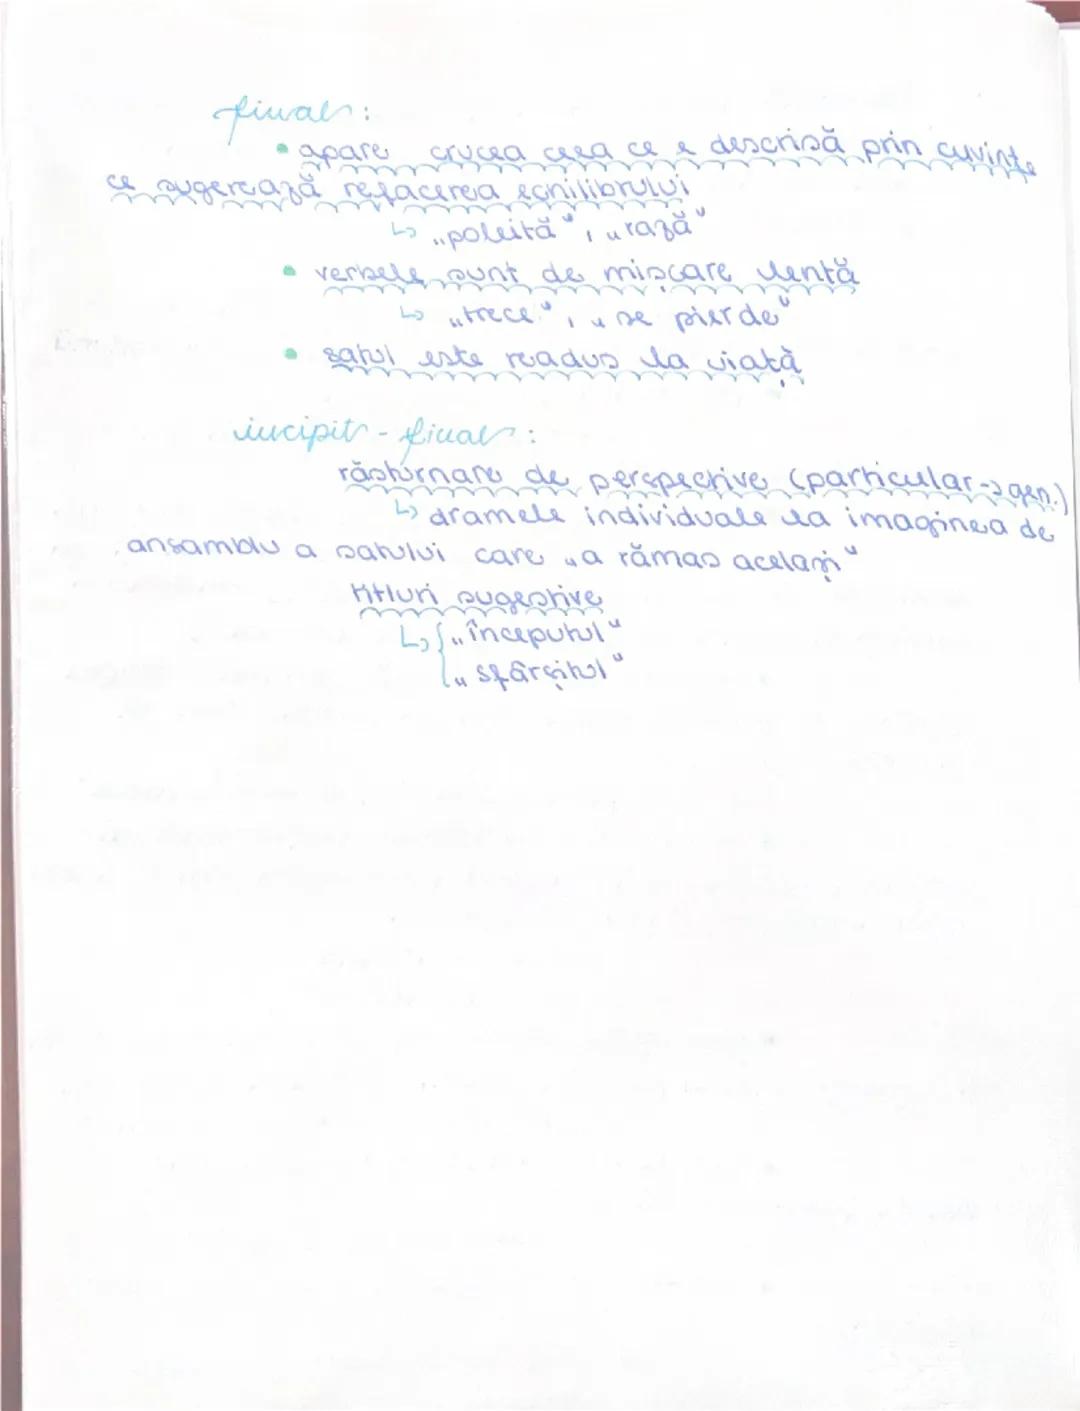 final:
• apare crucea ceea ce e descrisă prin cuvinte
ce sugerează refacerea echilibrului
↳ „poleită", „rază"
• verbele sunt de mișcare lentă
↳ „trece", „se pierde"
• satul este readus la viață
incipit - final:
răsturnare de perspective (particular→gen.)
↳ dramele individuale la imaginea de
ansamblu a satului care „a rămas același"
titluri sugestive
↳ { „începutul"
„sfârșitul"